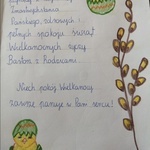 Zmartwychwstania
Pańskiego, zdrowych i
pełnych spokoju świąt
Wielkanocnych życzy
Bartosz z Rodzicami.
Niech pokój Wielkanocy
zawsze panuje w Pani sercu!